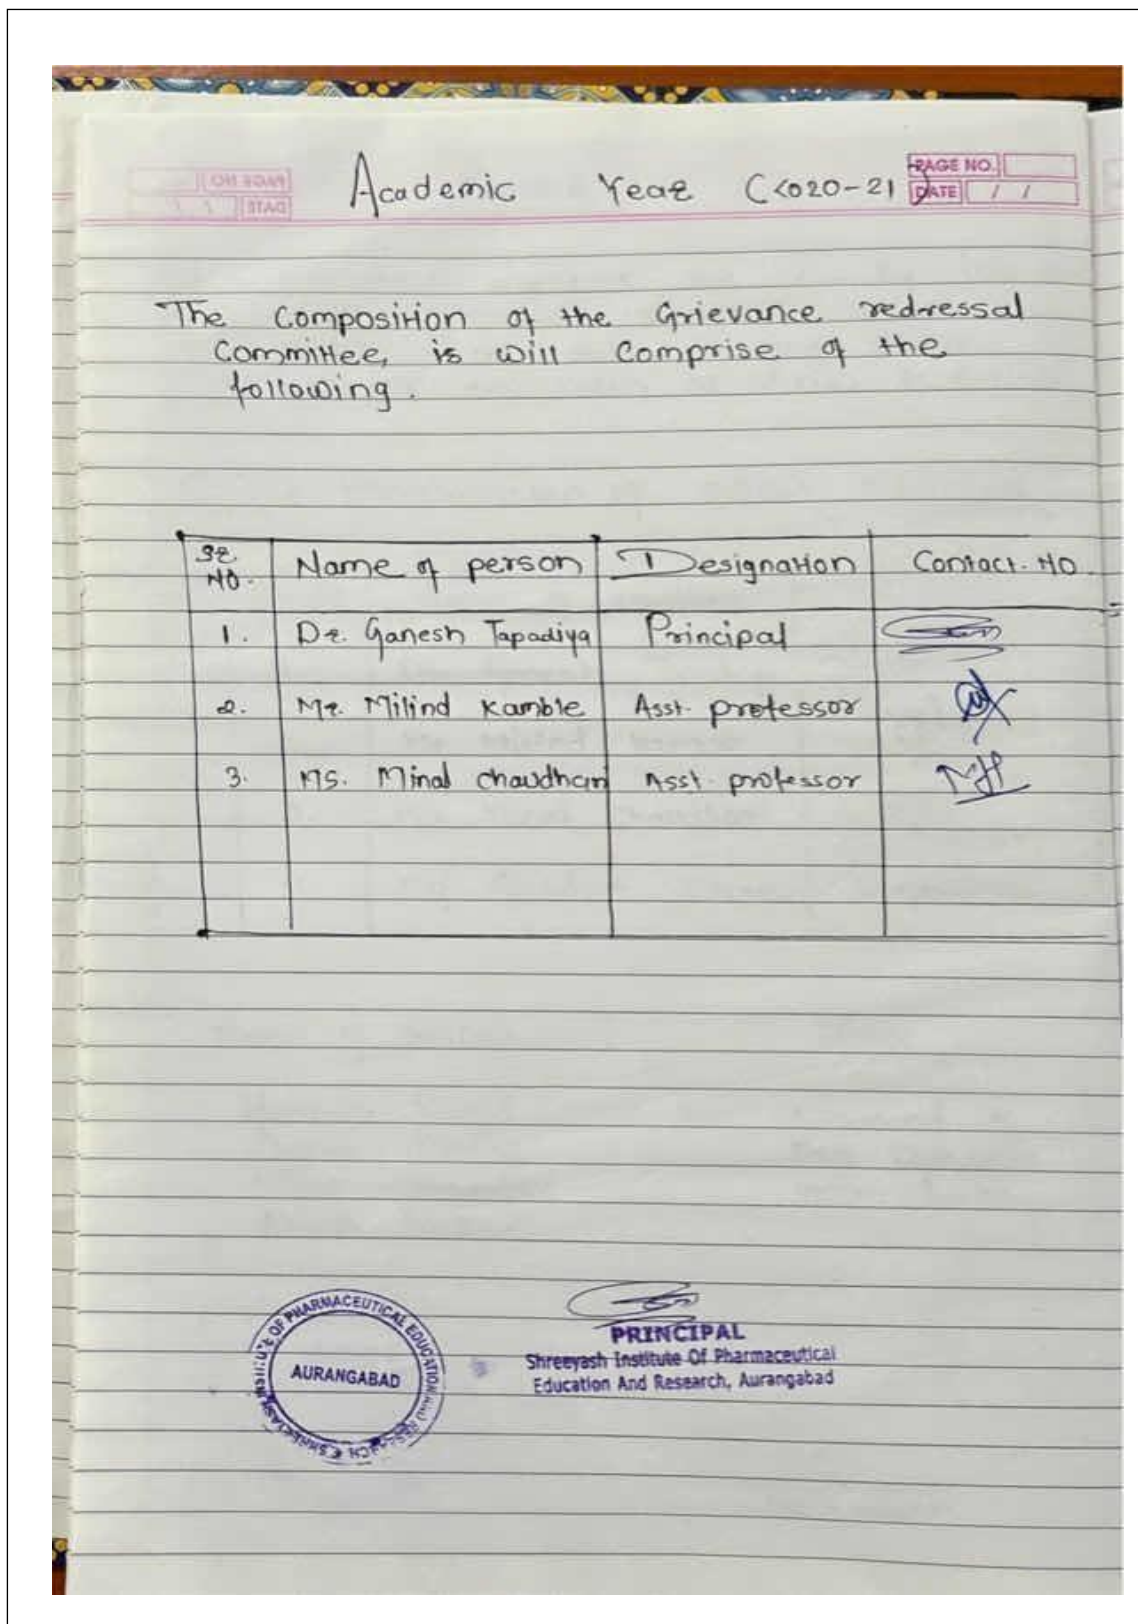 PAGE NO.
DATE / /
Academic Year (2020-21)
The Composition of the Grievance redressal
Committee, is will comprise of the
following.
Sr. No. Name of person Designation Contact. No.
1. Dr. Ganesh Tapadiya Principal
2. Mr. Milind Kamble Asst. professor
3. Ms. Minal chaudhari Asst. professor
SHREEYASH INSTITUTE OF PHARMACEUTICAL EDUCATION AND RESEARCH
AURANGABAD
PRINCIPAL
Shreeyash Institute Of Pharmaceutical
Education And Research, Aurangabad